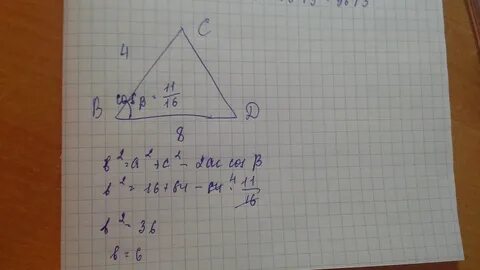 C
4
cos B = 11/16
B
D
8
b² = a² + c² - 2ac cos B
b² = 16 + 64 - 64 · 11/16
b² - 36
b = 6